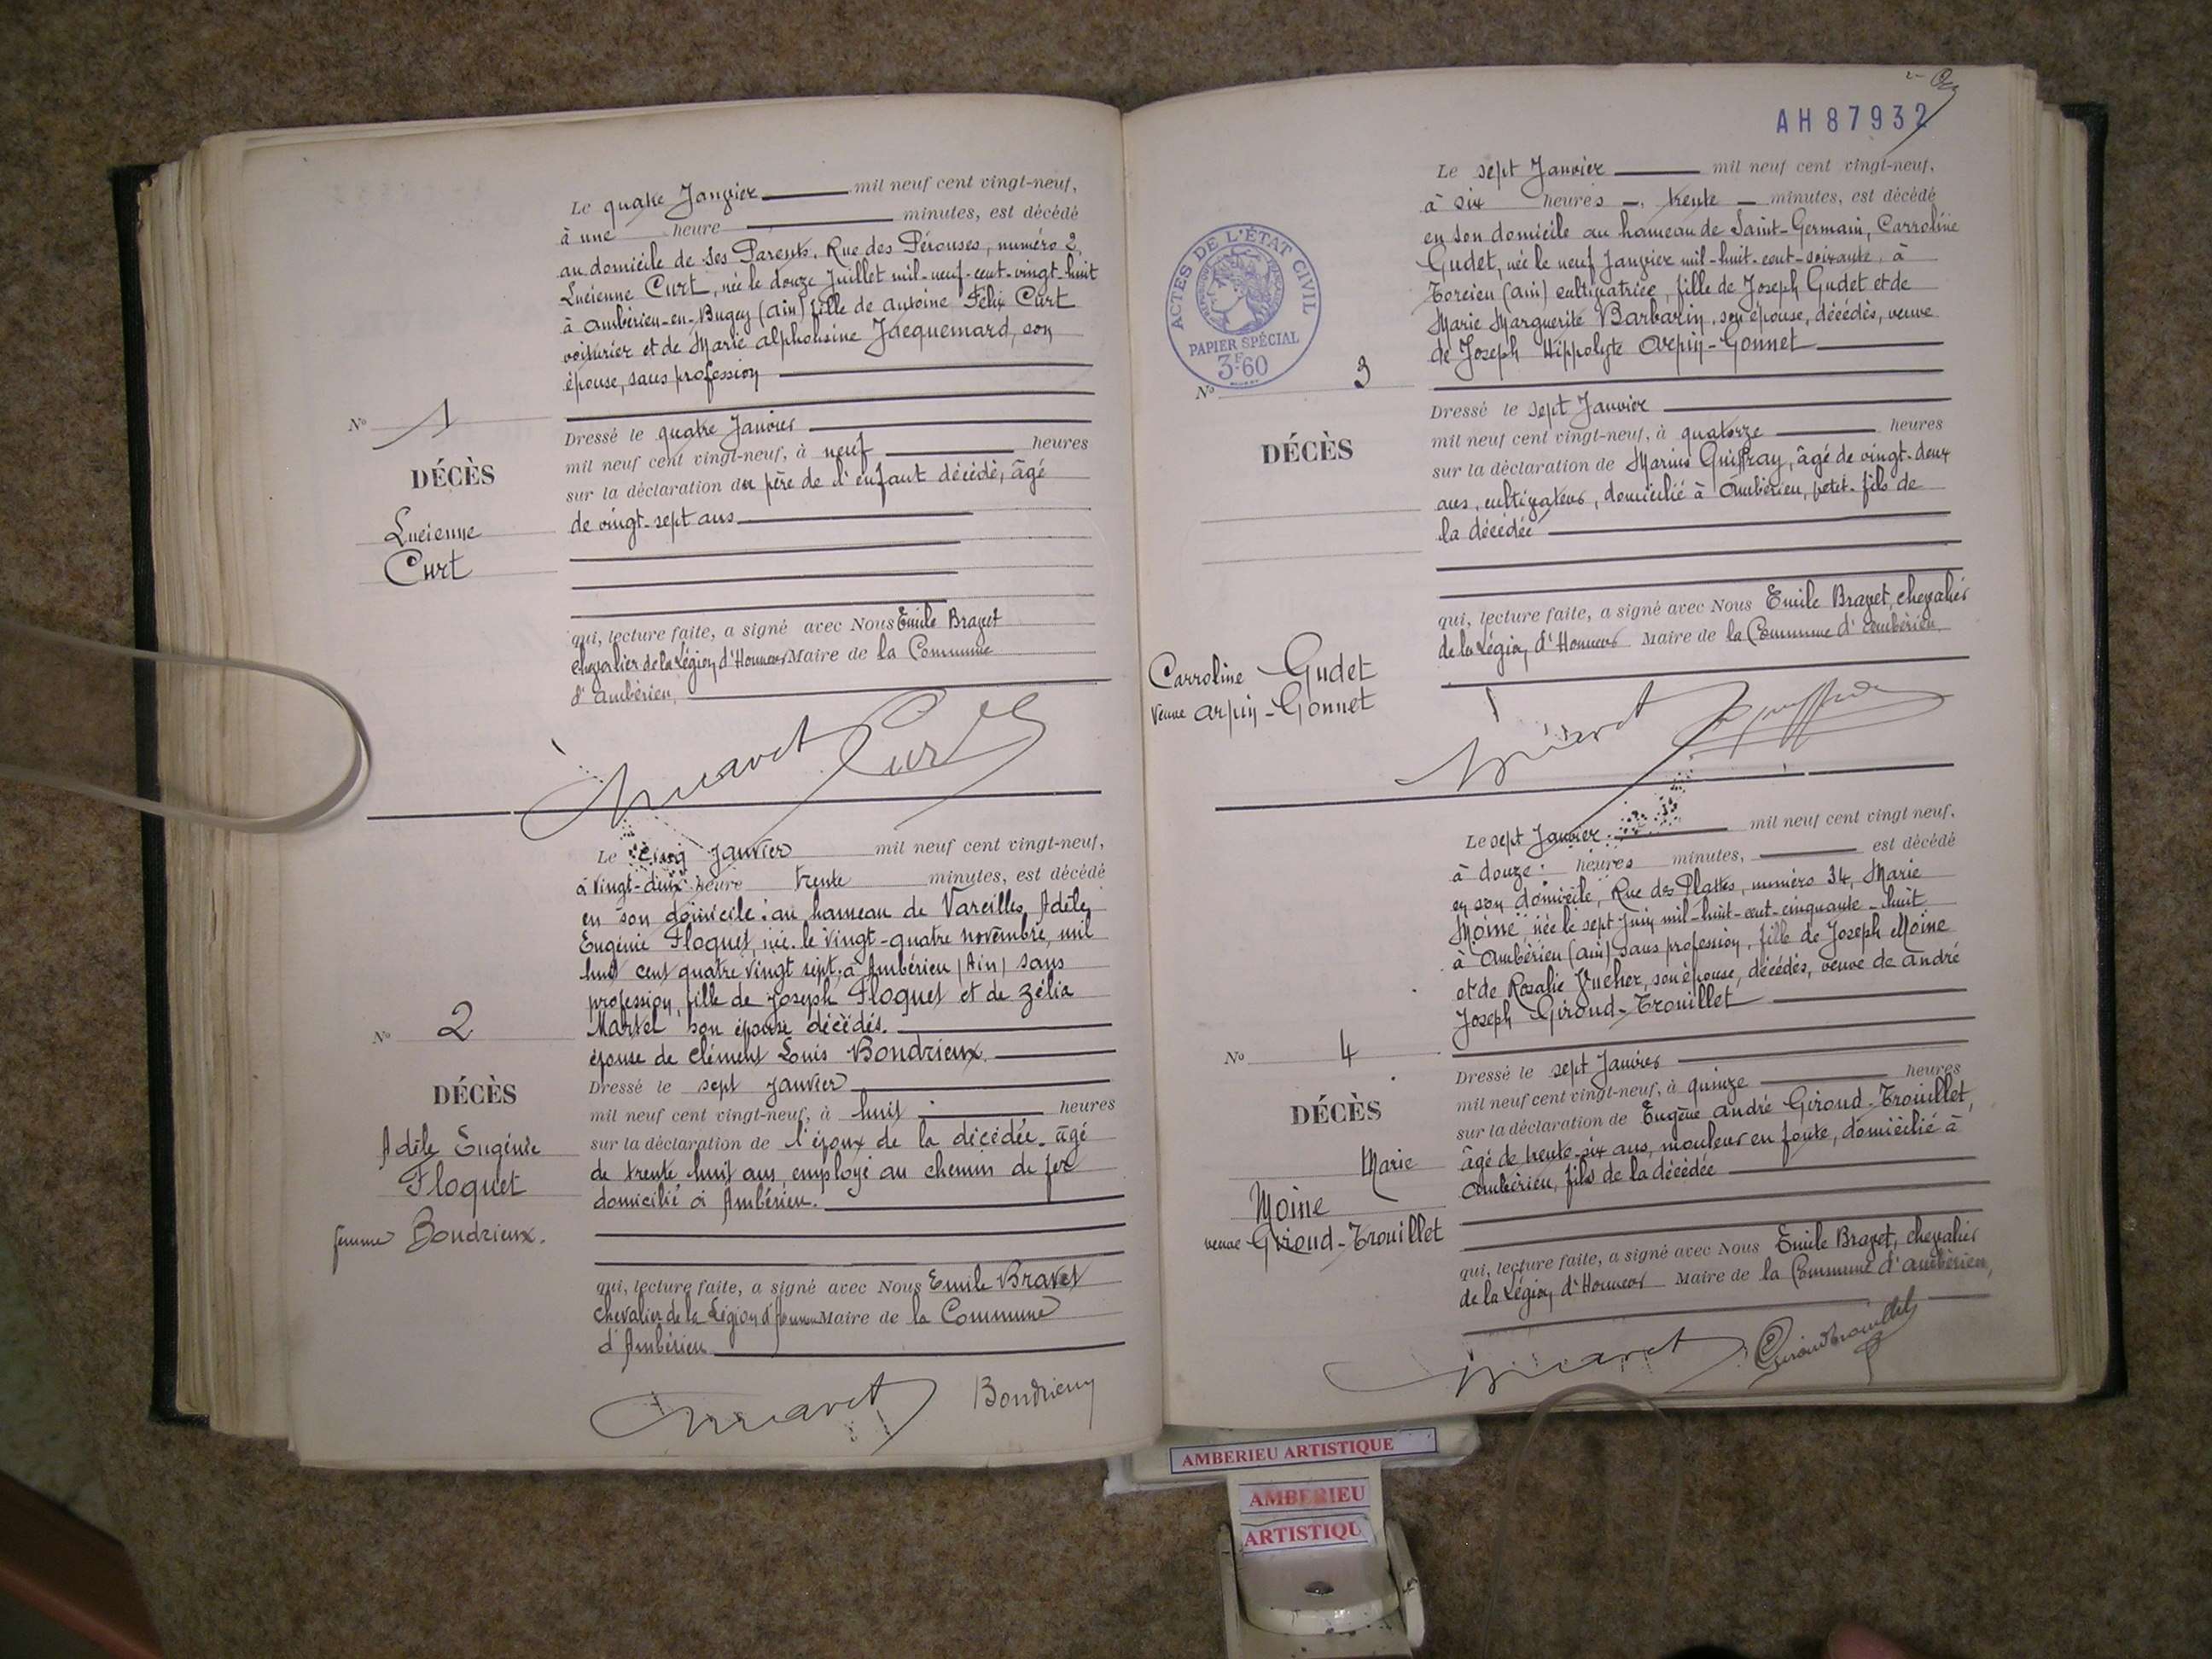 Le quatre Janvier mil neuf cent vingt-neuf,
à une heure minutes, est décédé
au domicile de ses Parents, Rue des Pérouses, numéro 2,
Lucienne Curt, née le douze Juillet mil-neuf-cent-vingt-huit
à Ambérieu-en-Bugey (Ain) fille de Antoine Félix Curt
voiturier et de Marie Alphonsine Jacquemard, son
épouse, sans profession
Dressé le quatre Janvier
mil neuf cent vingt-neuf, à neuf heures
sur la déclaration du père de l'enfant décédé, âgé
de vingt-sept ans
qui, lecture faite, a signé avec Nous Emile Bravet
chevalier de la Légion d'Honneur Maire de la Commune
d'Ambérieu,
N° 1
DÉCÈS
Lucienne
Curt
Bravet Curt
Le cinq janvier mil neuf cent vingt-neuf,
à vingt-deux heure trente minutes, est décédé
en son domicile au hameau de Vareilles, Adèle
Eugénie Floquet, née le vingt-quatre novembre, mil
huit cent quatre vingt sept, à Ambérieu (Ain) sans
profession, fille de Joseph Floquet et de Zélia
Martel son épouse décédés.
épouse de Clément Louis Bondrieux.
Dressé le sept janvier
mil neuf cent vingt-neuf, à huit heures
sur la déclaration de l'époux de la décédée. âgé
de trente huit ans, employé au chemin de fer
domicilié à Ambérieu.
qui, lecture faite, a signé avec Nous Emile Bravet
chevalier de la Légion d'honneur Maire de la Commune
d'Ambérieu
N° 2
DÉCÈS
Adèle Eugénie
Floquet
femme Bondrieux.
Bravet Bondrieux
AH87932
Le sept Janvier mil neuf cent vingt-neuf,
à six heures trente minutes, est décédé
en son domicile au hameau de Saint-Germain, Carroline
Gudet, née le neuf Janvier mil-huit-cent-soixante, à
Torcieu (Ain) cultivatrice, fille de Joseph Gudet et de
Marie Marguerite Barbarin, son épouse, décédés, veuve
de Joseph Hippolyte Arpin-Gonnet
ACTES DE L'ÉTAT CIVIL
PAPIER SPÉCIAL
3F60
N° 3
DÉCÈS
Dressé le sept Janvier
mil neuf cent vingt-neuf, à quatorze heures
sur la déclaration de Marius Guiffray, âgé de vingt-deux
ans, cultivateur, domicilié à Ambérieu, petit-fils de
la décédée
qui, lecture faite, a signé avec Nous Emile Bravet, chevalier
de la Légion d'Honneur Maire de la Commune d'Ambérieu,
Carroline Gudet
veuve Arpin-Gonnet
Bravet Guiffray
Le sept Janvier mil neuf cent vingt neuf,
à douze heures minutes, est décédé
en son domicile, Rue des Plattes, numéro 34, Marie
Moine née le sept Juin mil-huit-cent-cinquante-huit
à Ambérieu (Ain) sans profession, fille de Joseph Moine
et de Rosalie Jucher, son épouse, décédés, veuve de André
Joseph Giroud-Trouillet
N° 4
DÉCÈS
Marie
Moine
veuve Giroud-Trouillet
Dressé le sept Janvier
mil neuf cent vingt-neuf, à quinze heures
sur la déclaration de Eugène André Giroud-Trouillet,
âgé de trente-six ans, mouleur en fonte, domicilié à
Ambérieu, fils de la décédée
qui, lecture faite, a signé avec Nous Emile Bravet, chevalier
de la Légion d'Honneur Maire de la Commune d'Ambérieu,
Bravet Giroud Trouillet
AMBERIEU ARTISTIQUE
AMBERIEU
ARTISTIQU